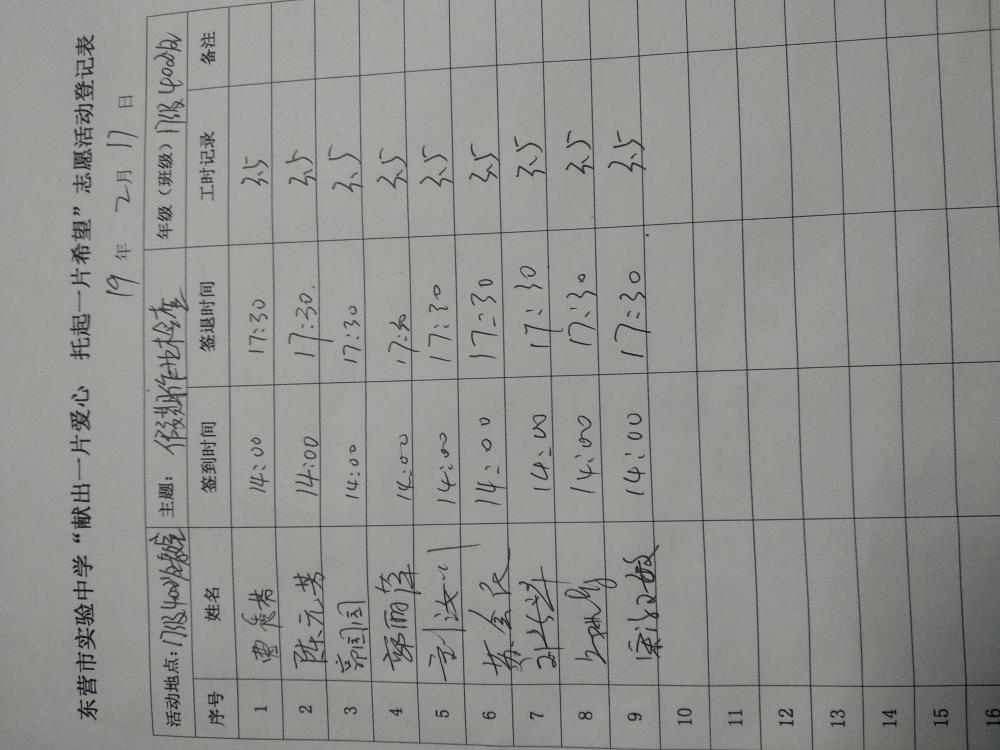 东营市实验中学“献出一片爱心 托起一片希望”志愿活动登记表
19 年 2 月 17 日
活动地点：17级400 教室 主题：假期作业检查 年级（班级）17级400
序号 姓名 签到时间 签退时间 工时记录 备注
1 曹秀芳 14:00 17:30 3.5
2 陈元芳 14:00 17:30 3.5
3 郭园园 14:00 17:30 3.5
4 郭丽萍 14:00 17:30 3.5
5 14:00 17:30 3.5
6 苏会民 14:00 17:30 3.5
7 14:00 17:30 3.5
8 14:00 17:30 3.5
9 14:00 17:30 3.5
10
11
12
13
14
15
16